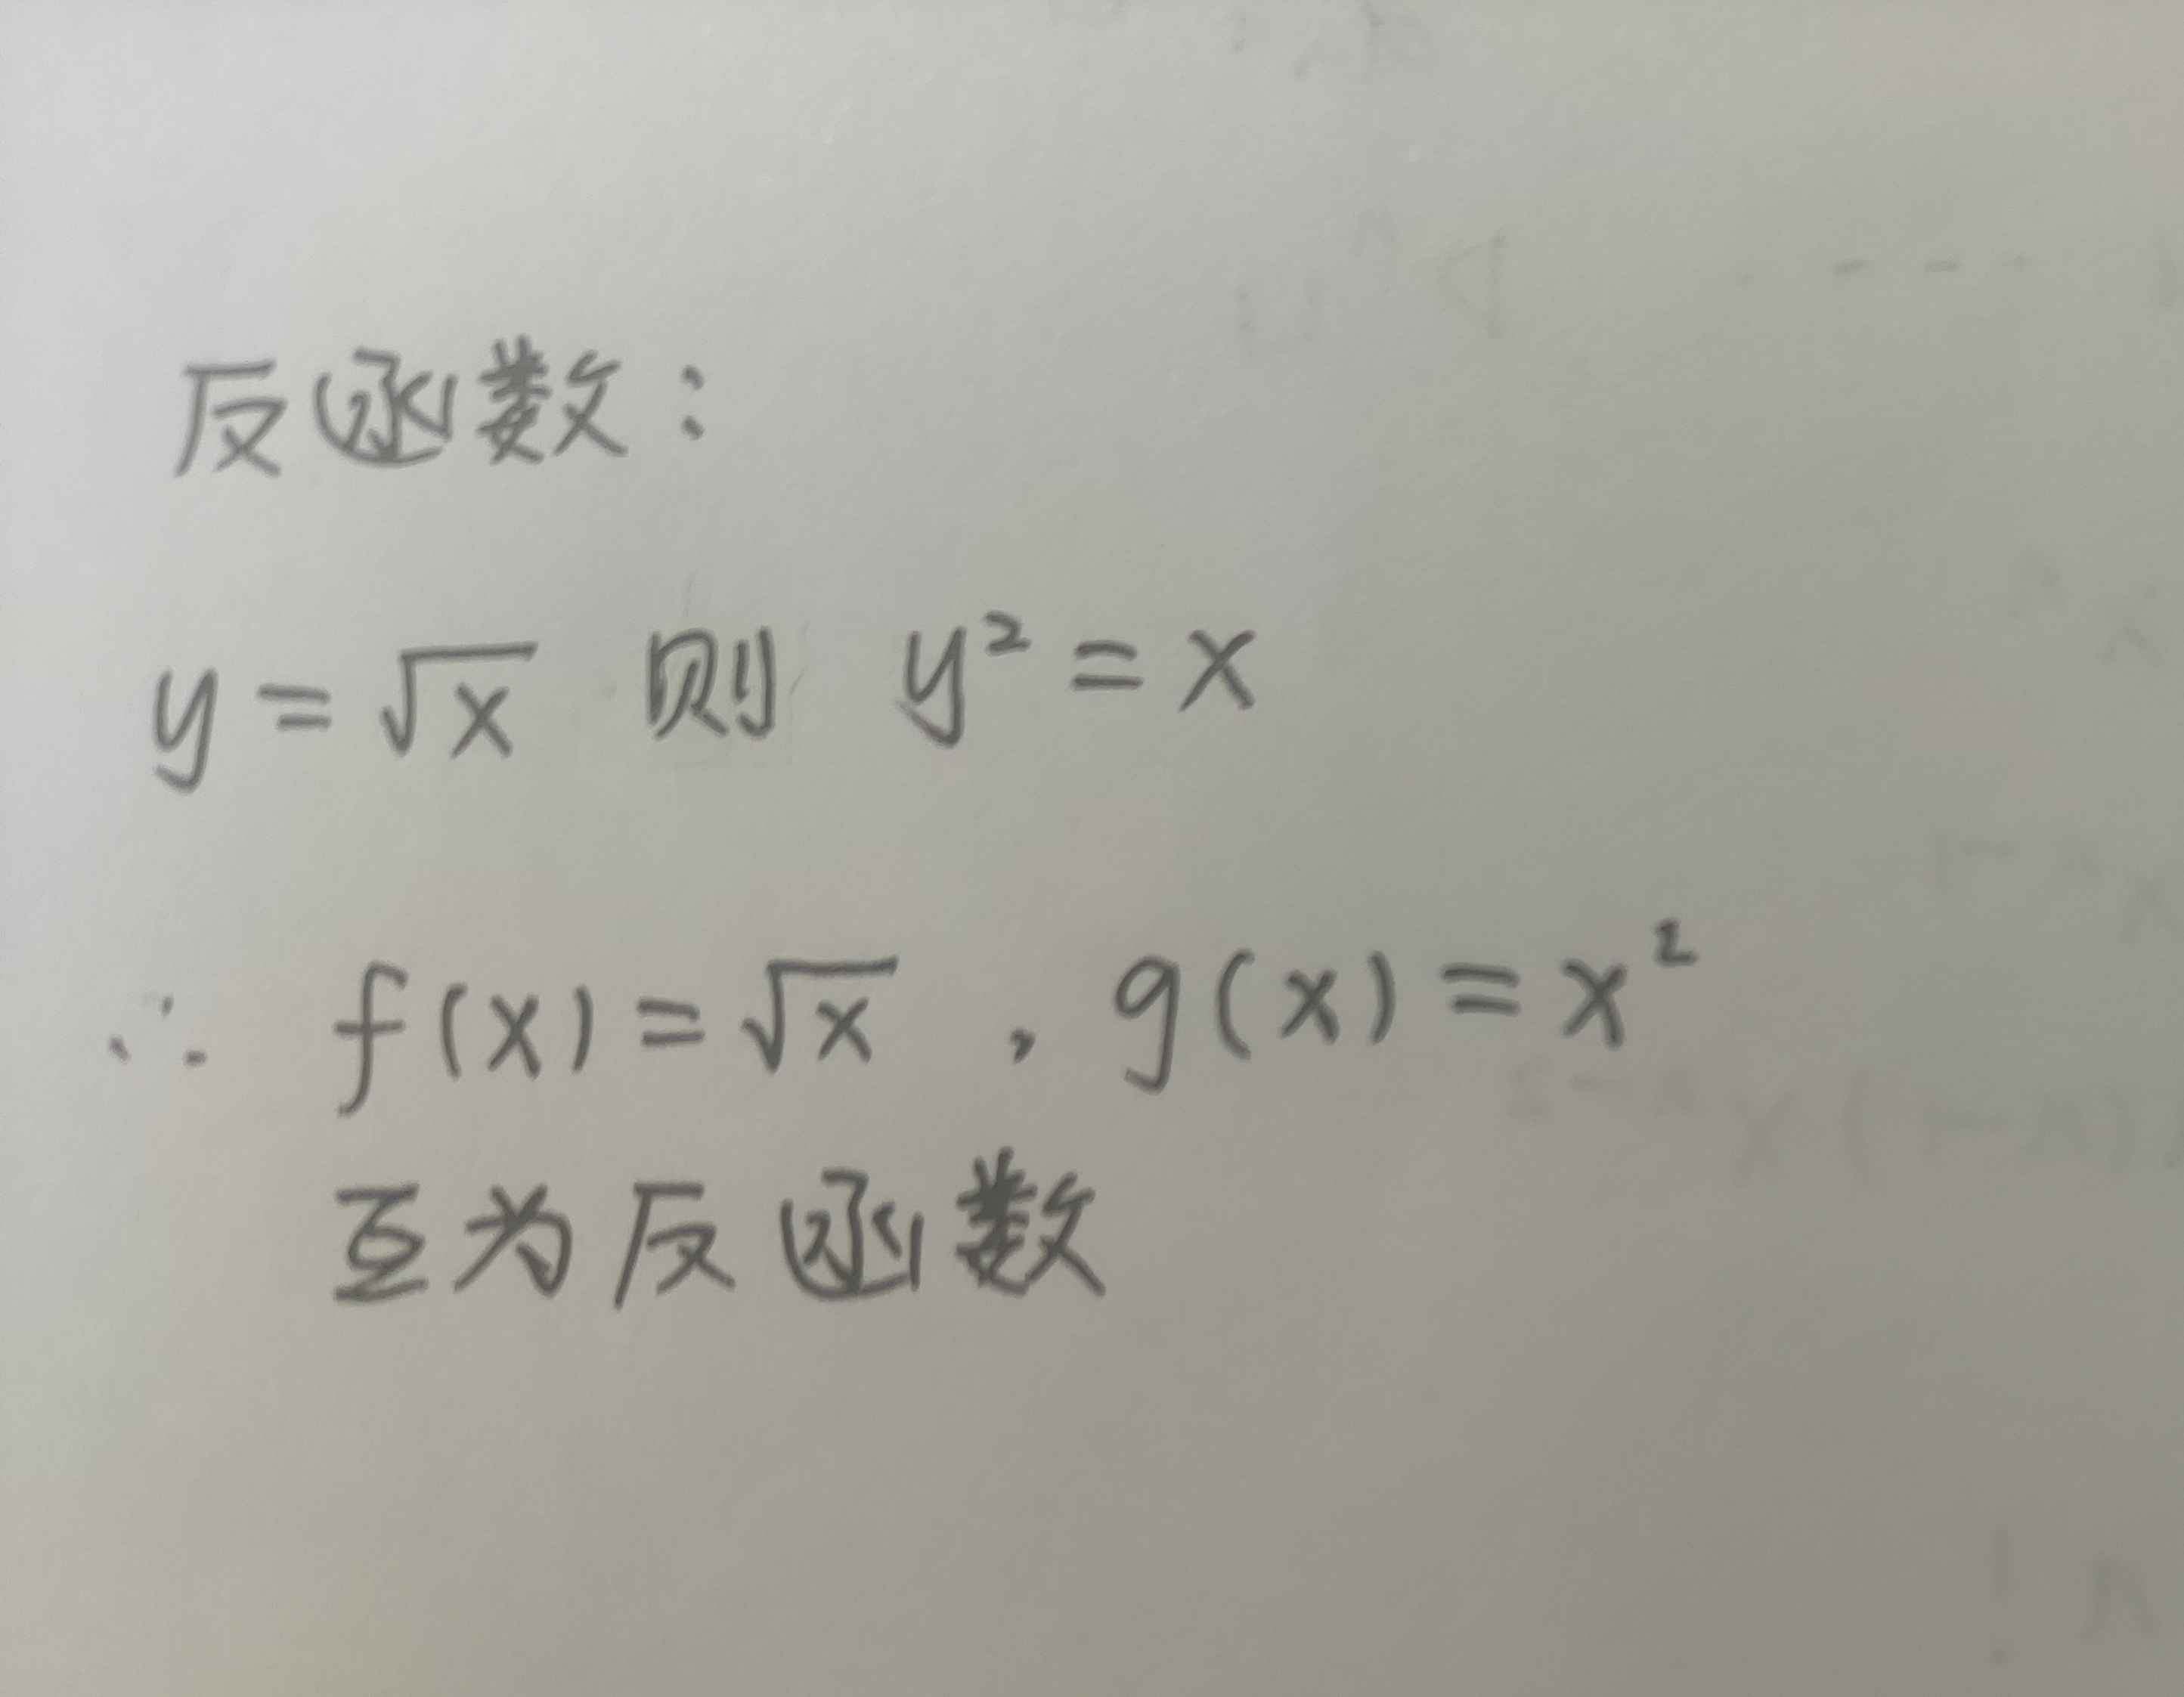 反函数：
y = √x 则 y² = x
∴ f(x) = √x ，g(x) = x²
互为反函数